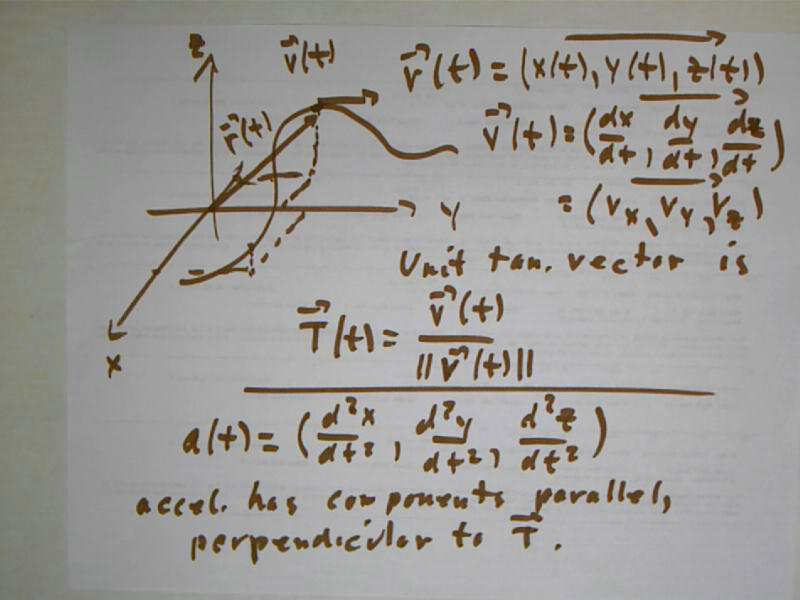 z
v⃗(t)
r⃗(t) = (x(t), y(t), z(t))
r⃗(t)
v⃗(t) = (dx/dt, dy/dt, dz/dt)
= (vx, vy, vz)
y
x
Unit tan. vector is
T⃗(t) = v⃗(t) / ||v⃗(t)||
a(t) = (d²x/dt², d²y/dt², d²z/dt²)
accel. has components parallel,
perpendicular to T⃗.